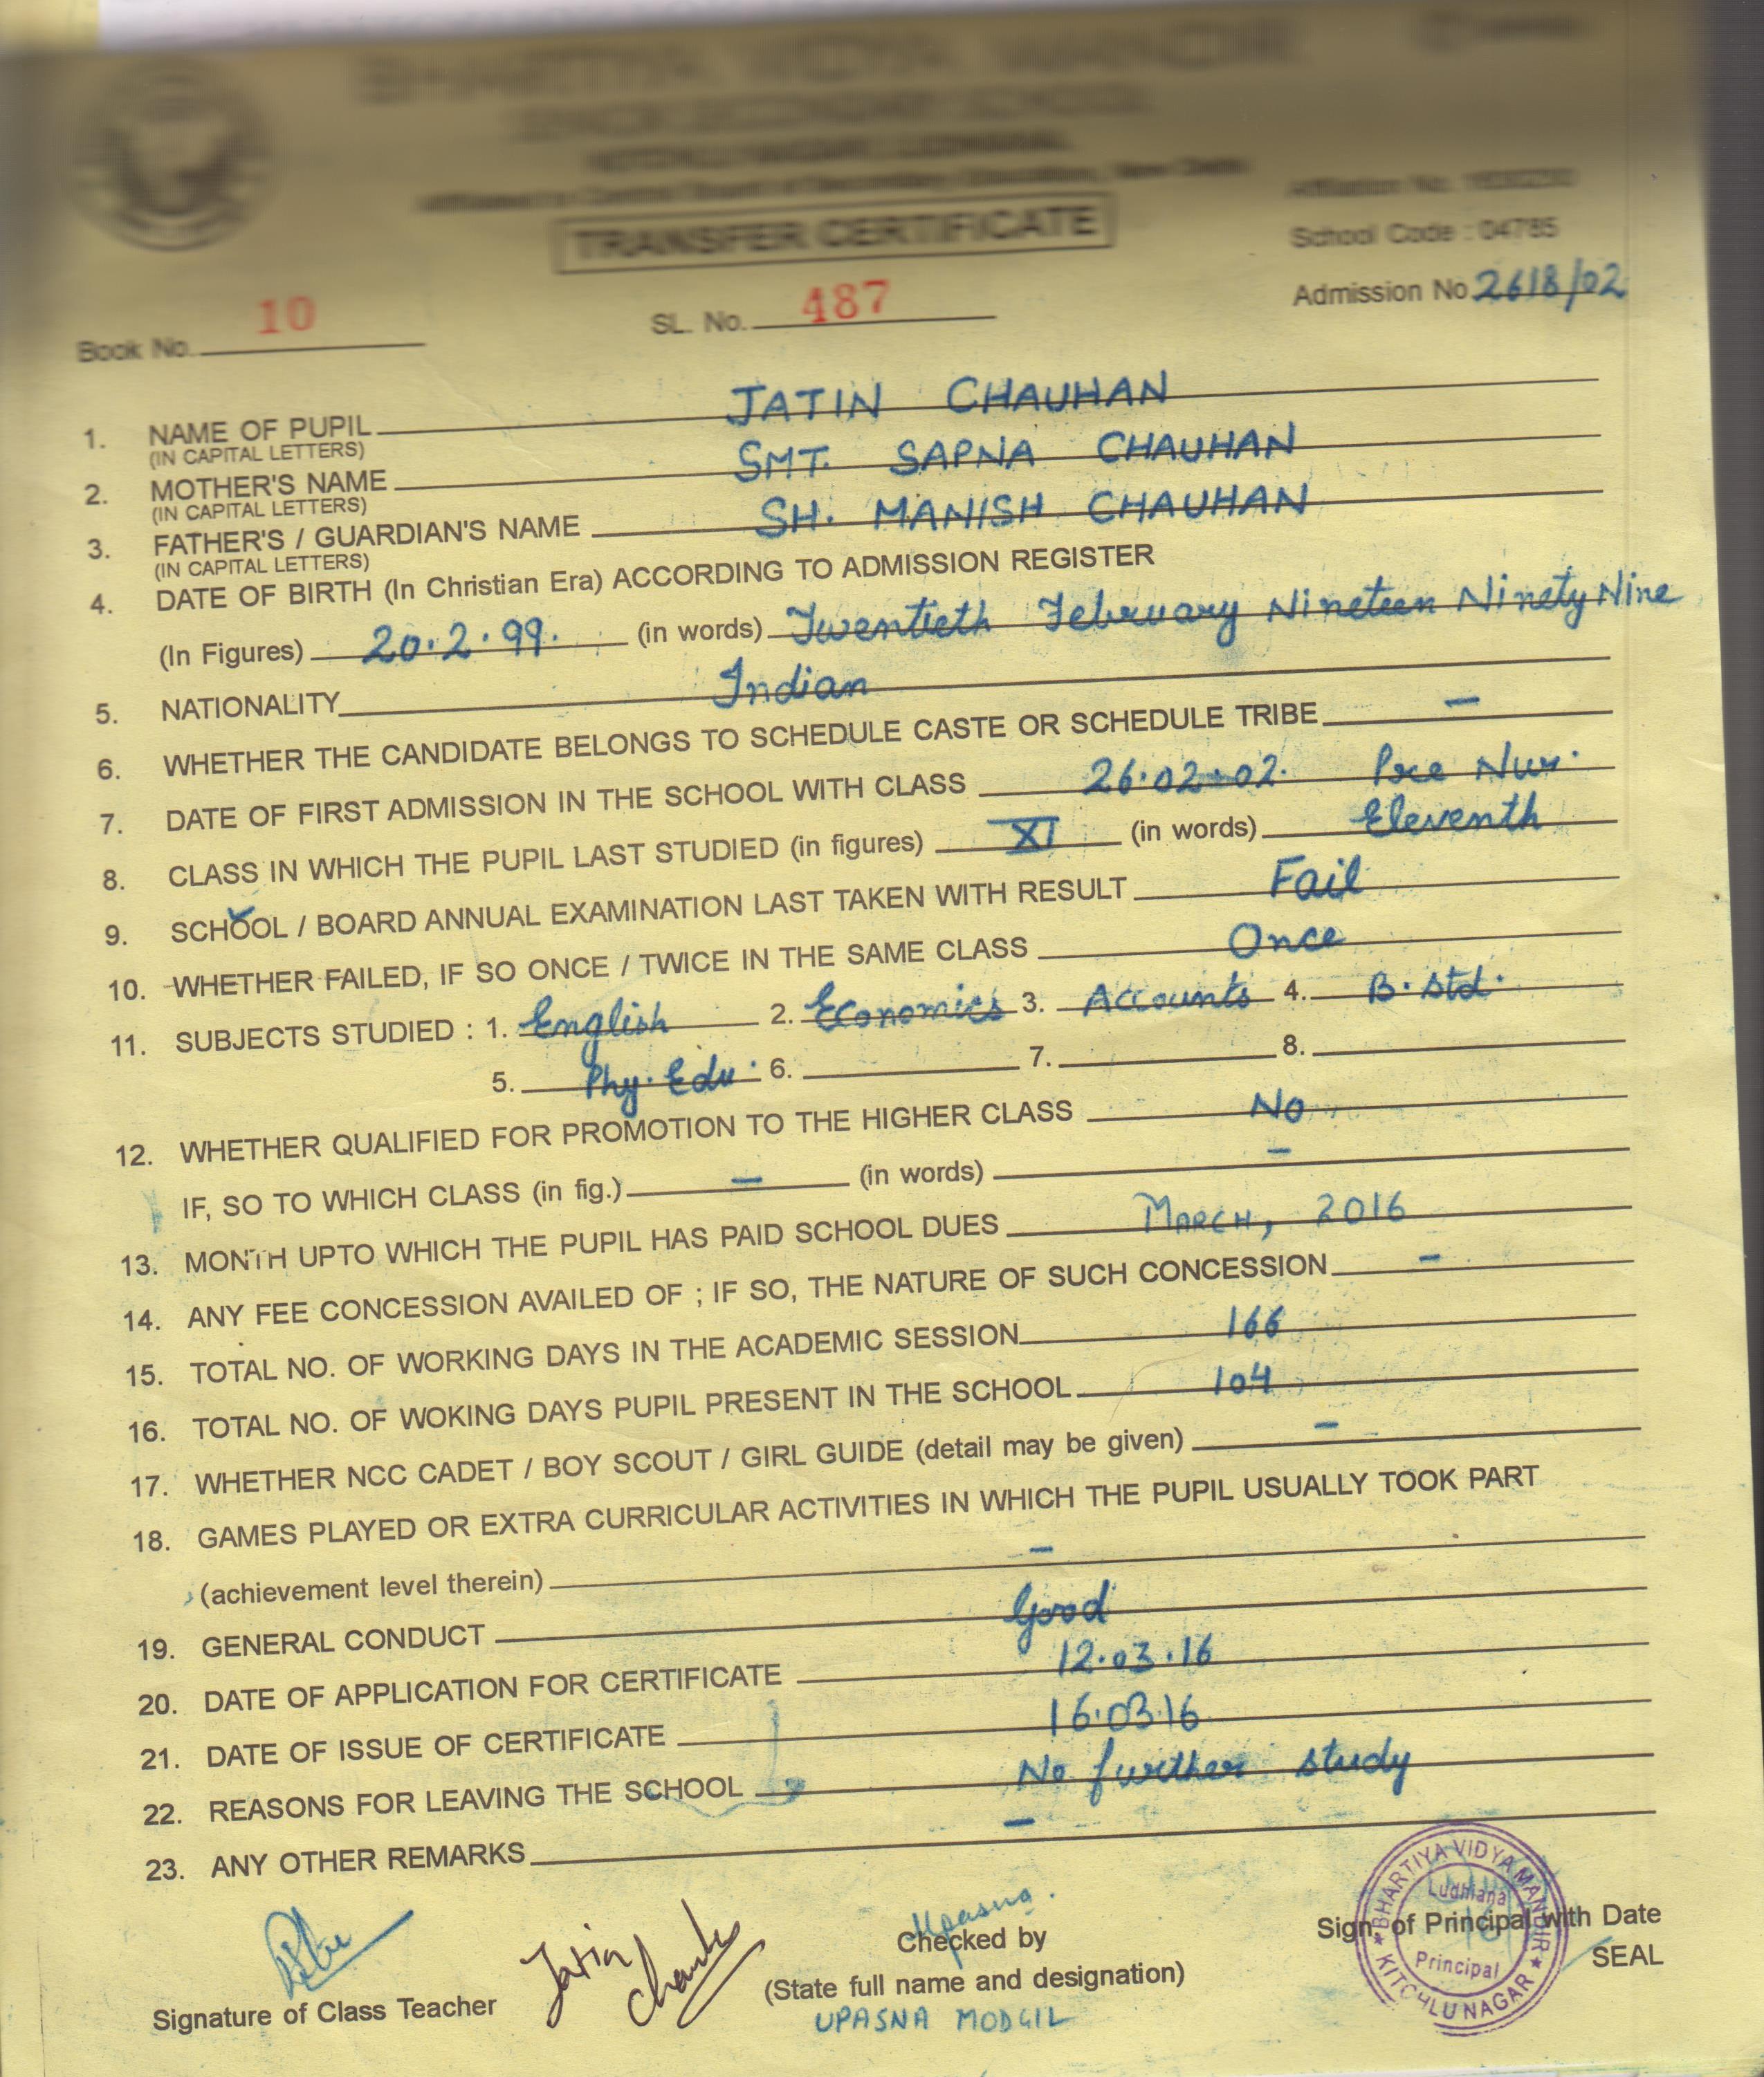 BHARTIYA VIDYA MANDIR
SENIOR SECONDARY SCHOOL
KITCHLU NAGAR, LUDHIANA
Affiliated to Central Board of Secondary Education, New Delhi
Affiliation No.
TRANSFER CERTIFICATE
School Code : 04785
Book No. 10 SL. No. 487 Admission No 2618/02
1. NAME OF PUPIL JATIN CHAUHAN
(IN CAPITAL LETTERS)
2. MOTHER'S NAME SMT. SAPNA CHAUHAN
(IN CAPITAL LETTERS)
3. FATHER'S / GUARDIAN'S NAME SH. MANISH CHAUHAN
(IN CAPITAL LETTERS)
4. DATE OF BIRTH (In Christian Era) ACCORDING TO ADMISSION REGISTER
(In Figures) 20.2.99. (in words) Twentieth February Nineteen Ninety Nine
5. NATIONALITY Indian
6. WHETHER THE CANDIDATE BELONGS TO SCHEDULE CASTE OR SCHEDULE TRIBE –
7. DATE OF FIRST ADMISSION IN THE SCHOOL WITH CLASS 26.02.02. Pre Nur.
8. CLASS IN WHICH THE PUPIL LAST STUDIED (in figures) XI (in words) Eleventh
9. SCHOOL / BOARD ANNUAL EXAMINATION LAST TAKEN WITH RESULT Fail
10. WHETHER FAILED, IF SO ONCE / TWICE IN THE SAME CLASS Once
11. SUBJECTS STUDIED : 1. English 2. Economics 3. Accounts 4. B. std.
5. Phy. Edu. 6. 7. 8.
12. WHETHER QUALIFIED FOR PROMOTION TO THE HIGHER CLASS No
IF, SO TO WHICH CLASS (in fig.) – (in words) –
13. MONTH UPTO WHICH THE PUPIL HAS PAID SCHOOL DUES MARCH, 2016
14. ANY FEE CONCESSION AVAILED OF ; IF SO, THE NATURE OF SUCH CONCESSION –
15. TOTAL NO. OF WORKING DAYS IN THE ACADEMIC SESSION 166
16. TOTAL NO. OF WOKING DAYS PUPIL PRESENT IN THE SCHOOL 104
17. WHETHER NCC CADET / BOY SCOUT / GIRL GUIDE (detail may be given) –
18. GAMES PLAYED OR EXTRA CURRICULAR ACTIVITIES IN WHICH THE PUPIL USUALLY TOOK PART
(achievement level therein) –
19. GENERAL CONDUCT Good
20. DATE OF APPLICATION FOR CERTIFICATE 12.03.16
21. DATE OF ISSUE OF CERTIFICATE 16.03.16
22. REASONS FOR LEAVING THE SCHOOL No further study
23. ANY OTHER REMARKS –
Jatin Chauhan
Upasna.
Signature of Class Teacher
Checked by
(State full name and designation)
UPASNA MODGIL
Sign. of Principal with Date
SEAL
BHARTIYA VIDYA MANDIR
Ludhiana
Principal
KITCHLU NAGAR